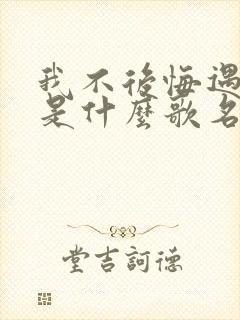 我不後悔遇
是什麼歌名
堂吉訶德